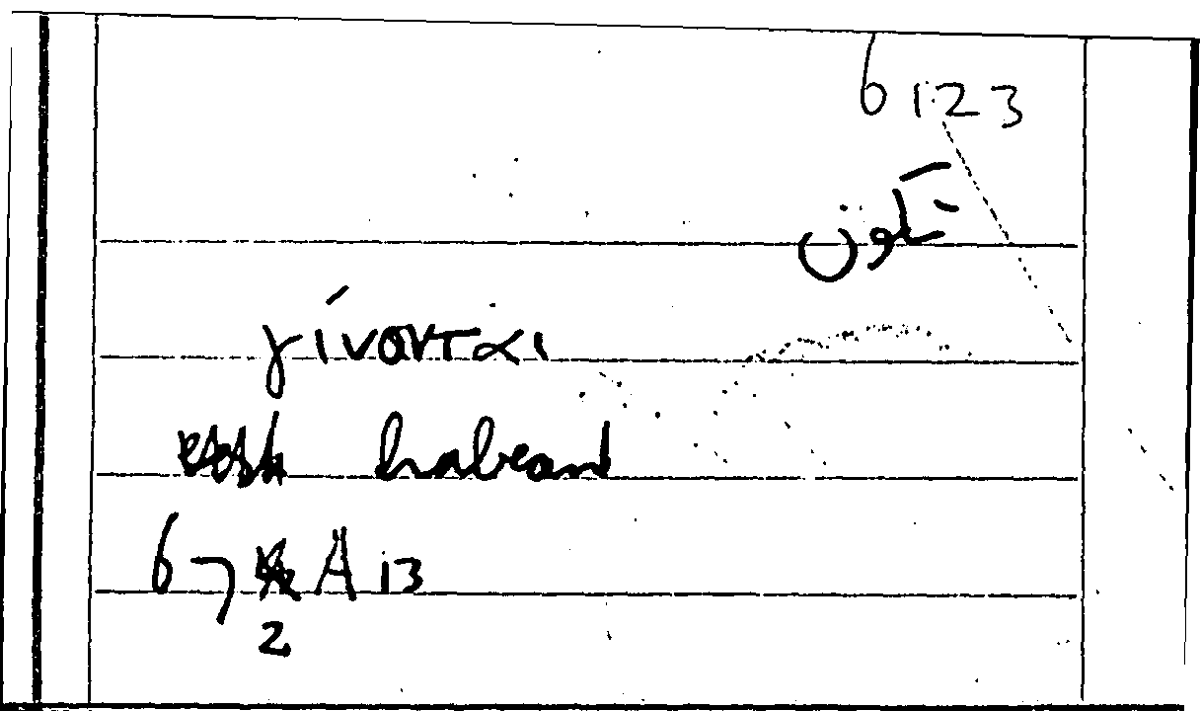 6123
تكون
γίνονται
habeant
67 A 13
2